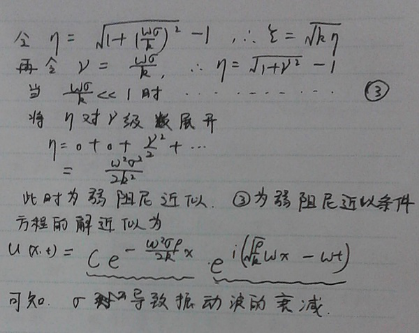 令 η = √(1+(ωσ/k)²) - 1 ∴ ξ = √(kη)
再令 γ = ωσ/k, ∴ η = √(1+γ²) - 1
当 ωσ/k << 1 时 ············ ③
将 η 对 γ 级数展开
η = 0 + 0 + γ²/2 + ···
= ω²σ²/2k²
此时为弱阻尼近似. ③为弱阻尼近似条件
方程的解近似为
u(x,t) = C e^(-ω²σρ/2k x) e^(i(√(ρ/k) ωx - ωt))
可知. σ 导致振动波的衰减.